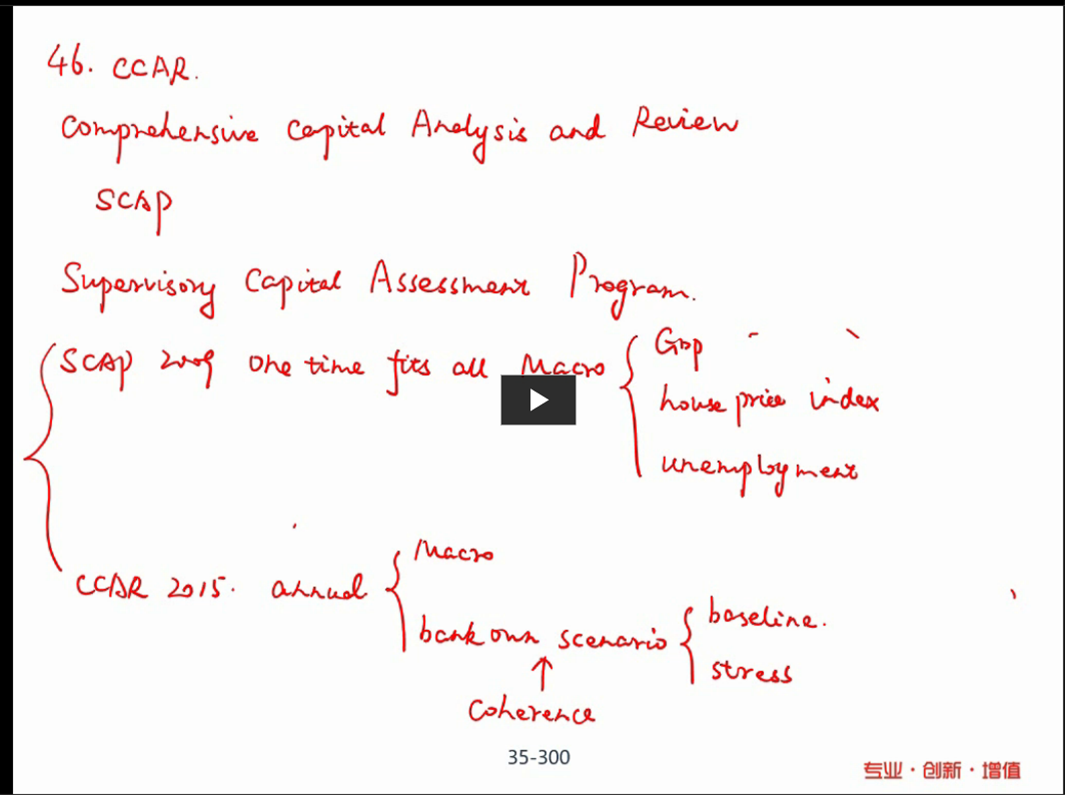 46. CCAR.
Comprehensive Capital Analysis and Review
SCAP
Supervisory Capital Assessment Program.
SCAP 2009 one time fits all Macro
GDP
house price index
unemployment
CCAR 2015. annual
Macro
bank own scenario
baseline.
stress
coherence
35-300
专业·创新·增值